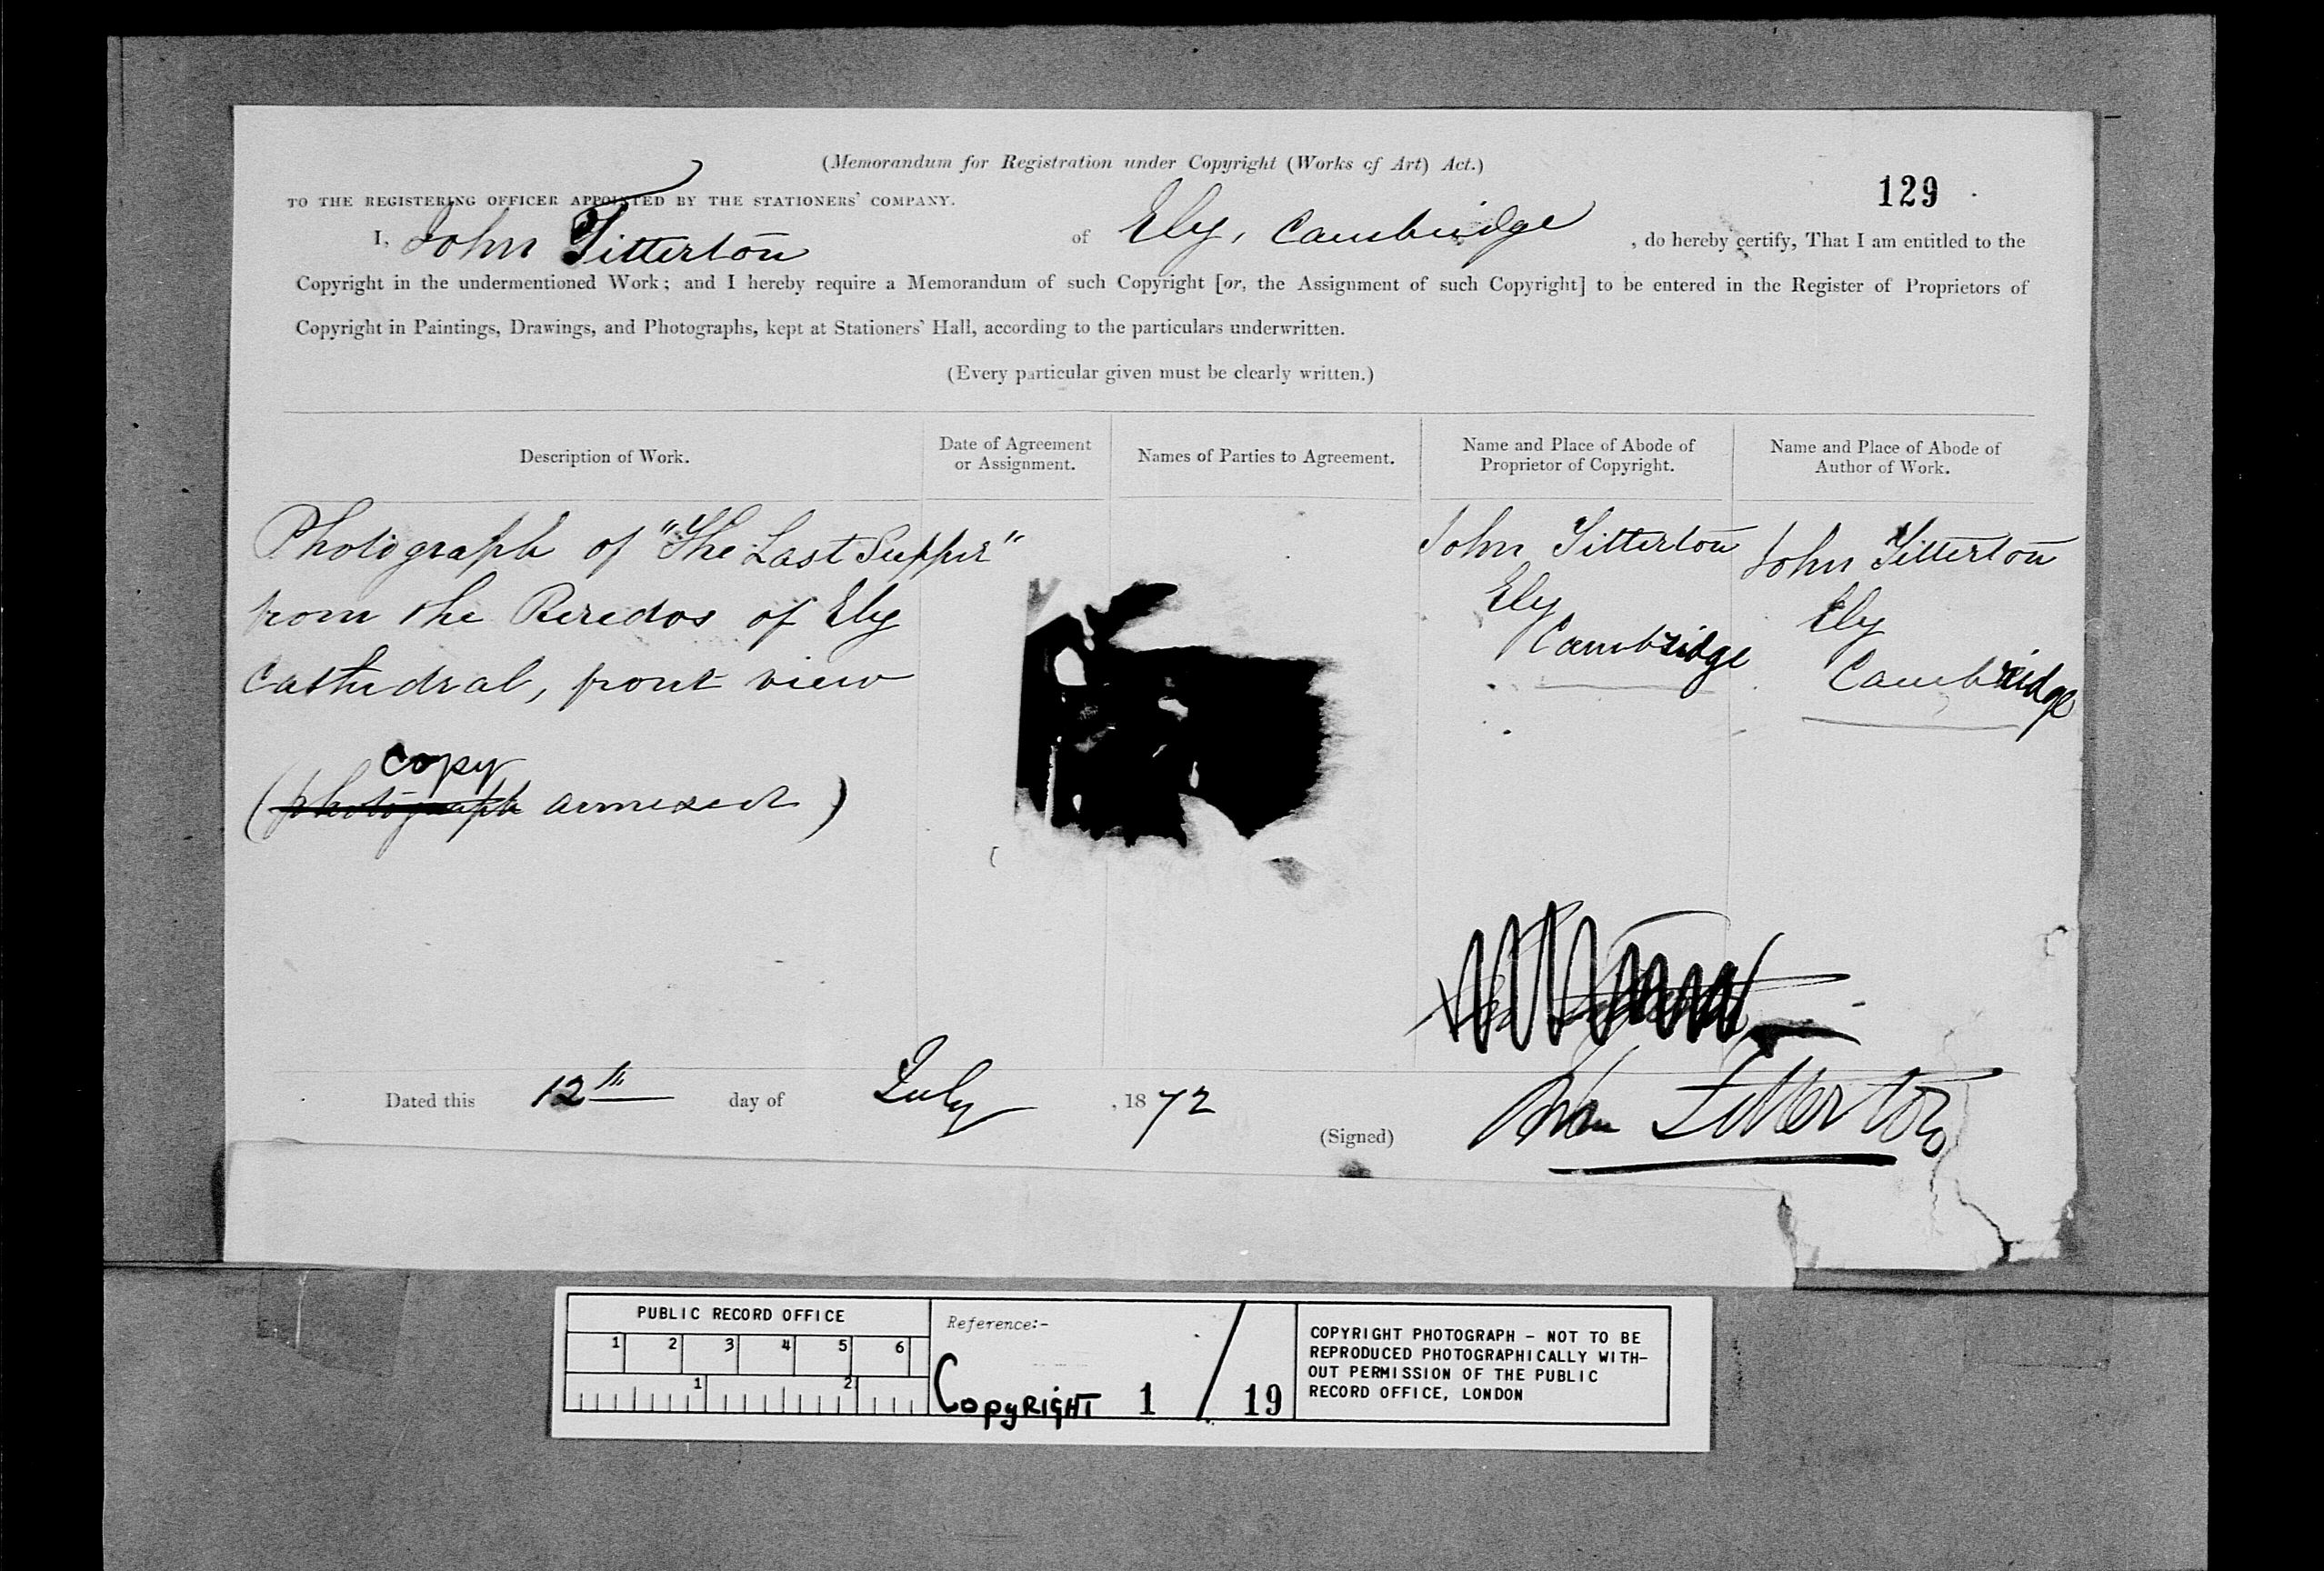 (Memorandum for Registration under Copyright (Works of Art) Act.)
129
TO THE REGISTERING OFFICER APPOINTED BY THE STATIONERS' COMPANY.
I, John Titterton of Ely, Cambridge, do hereby certify, That I am entitled to the
Copyright in the undermentioned Work; and I hereby require a Memorandum of such Copyright [or, the Assignment of such Copyright] to be entered in the Register of Proprietors of
Copyright in Paintings, Drawings, and Photographs, kept at Stationers' Hall, according to the particulars underwritten.
(Every particular given must be clearly written.)
Description of Work.
Date of Agreement
or Assignment.
Names of Parties to Agreement.
Name and Place of Abode of
Proprietor of Copyright.
Name and Place of Abode of
Author of Work.
Photograph of "The Last Supper"
from the Reredos of Ely
Cathedral, front view
copy
(photograph annexed)
John Titterton
Ely
Cambridge
John Titterton
Ely
Cambridge
Dated this 12th day of July, 1872
(Signed) John Titterton
PUBLIC RECORD OFFICE
1 2 3 4 5 6
1 2
Reference:-
COPYRIGHT 1 / 19
COPYRIGHT PHOTOGRAPH - NOT TO BE
REPRODUCED PHOTOGRAPHICALLY WITH-
OUT PERMISSION OF THE PUBLIC
RECORD OFFICE, LONDON